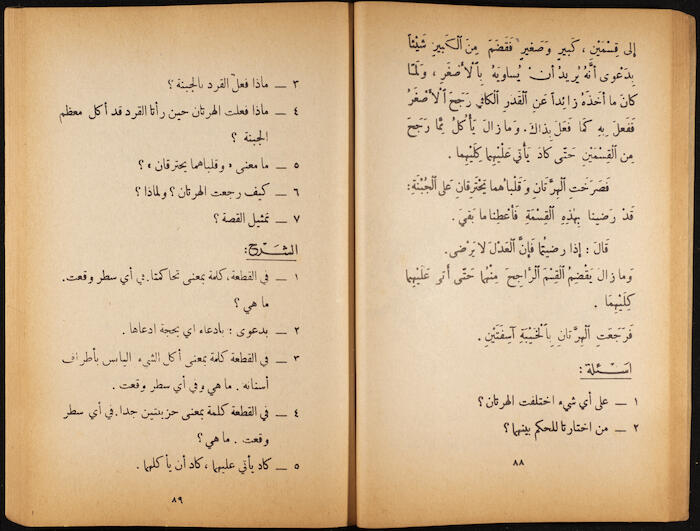 إِلى قِسْمَيْنِ ، كَبِيرٍ وَصَغِيرٍ فَقَضَمَ مِنَ الْكَبِيرِ شَيْئاً
بِدَعْوى أَنَّهُ يُرِيدُ أَنْ يُساوِيَهُ بِالْأَصْغَرِ ، وَلَمّا
كانَ ما أَخَذَهُ زائِداً عَنِ الْقَدَرِ الْكافي رَجَحَ الْأَصْغَرُ
فَفَعَلَ بِهِ كَما فَعَلَ بِذاكَ . وَما زالَ يَأْكُلُ مِمّا رَجَحَ
مِنَ الْقِسْمَيْنِ حَتّى كادَ يَأْتي عَلَيْهِما كِلَيْهِما .
فَصَرَخَتِ الْهِرَّتانِ وَقَلْباهُما يَحْتَرِقانِ عَلى الْجُبْنَةِ :
قَدْ رَضينا بِهٰذِهِ الْقِسْمَةِ فَأَعْطِنا ما بَقيَ .
قالَ : إِذا رضيتُما فَإِنَّ الْعَدْلَ لا يَرْضى .
وَما زالَ يَقْضِمُ الْقِسْمَ الرّاجِحَ مِنْهُما حَتّى أَتى عَلَيْهِما
كِلَيْهِما .
فَرَجَعَتِ الْهِرَّتانِ بِالْخَيْبَةِ آسِفَتَيْنِ .
اسئلة :
١ – على أي شيء اختلفت الهرتان ؟
٢ – من اختارتا للحكم بينهما ؟
٨٨
٣ – ماذا فعل القرد بالجبنة ؟
٤ – ماذا فعلت الهرتان حين رأتا القرد قد أكل معظم
الجبنة ؟
٥ – ما معنى « وقلباهما يحترقان » ؟
٦ – كيف رجعت الهرتان ؟ ولماذا ؟
٧ – تمثيل القصة ؟
الشرح :
١ – في القطعة، كلمة بمعنى تحاكمتا. في أي سطر وقعت.
ما هي ؟
٢ – بدعوى : بادعاء اي بحجة ادعاها .
٣ – في القطعة كلمة بمعنى أكل الشيء اليابس بأطراف
أسنانه . ما هي وفي أي سطر وقعت .
٤ – في القطعة كلمة بمعنى حزينتين جدا. في أي سطر
وقعت . ما هي ؟
٥ – كاد يأتي عليهما ، كاد أن يأكلهما .
٨٩